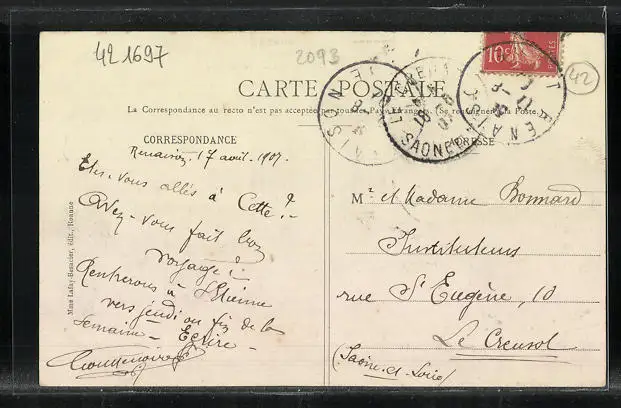 42 1697
2093
10c
POSTES
42
CARTE POSTALE
La Correspondance au recto n'est pas acceptée par tous les Pays Etrangers (Se renseigner à la Poste)
SAONE
CORRESPONDANCE
ADRESSE
Renaison, 17 août 1907.
Etes-vous allés à Cette?
Avez-vous fait bon
voyage?
Rentrerons à St Etienne
vers jeudi ou fin de la
semaine - Ecrire -
Mme Lafay-Bessacier, édit., Roanne
Mr et Madame Bonnard
Instituteurs
rue St Eugène, 10
Le Creusot
(Saône-et-Loire)